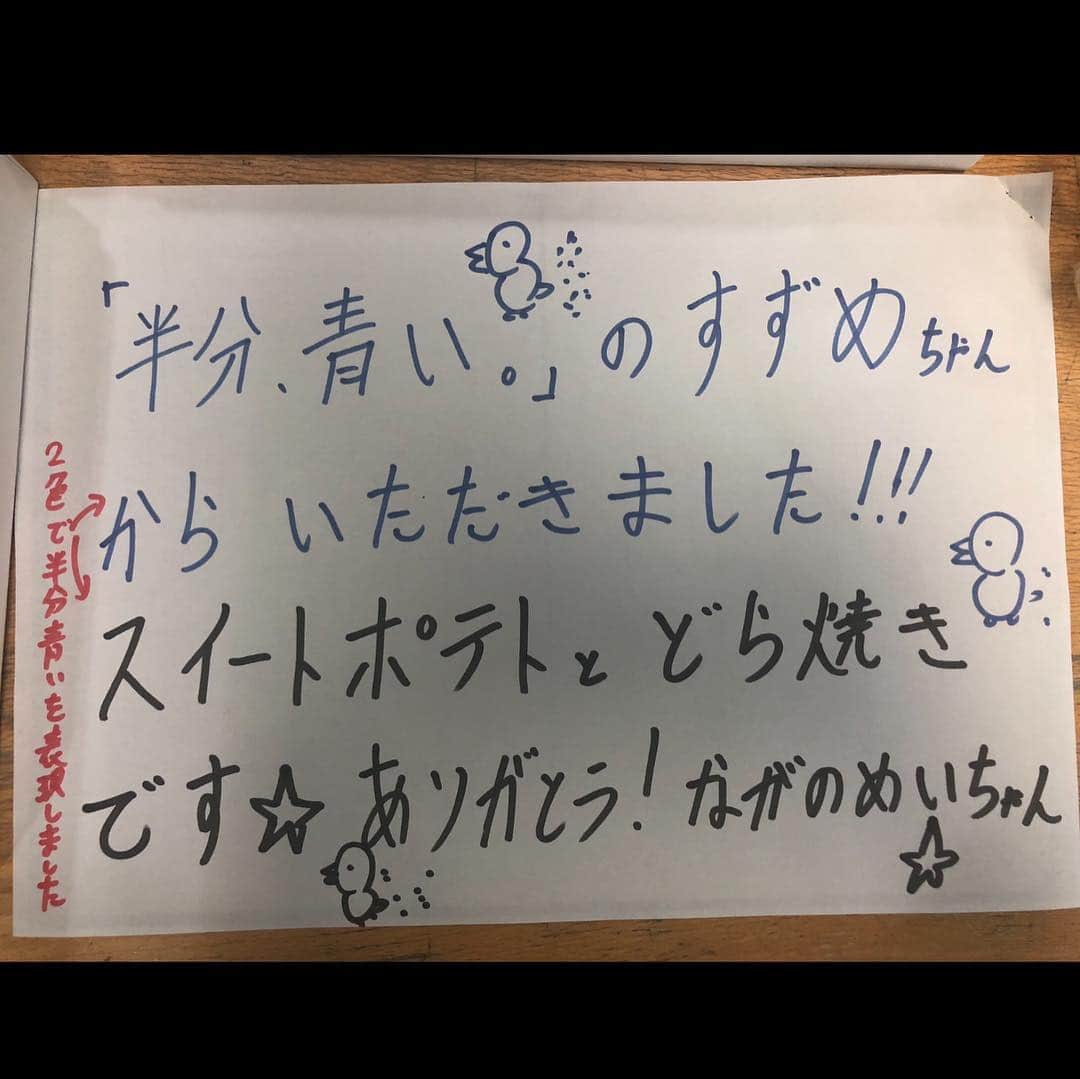 「半分、青い。」のすずめちゃん
からいただきました!!!
スイートポテトとどら焼き
です☆ありがとう!ながのめいちゃん
2色で半分青いを表現しました